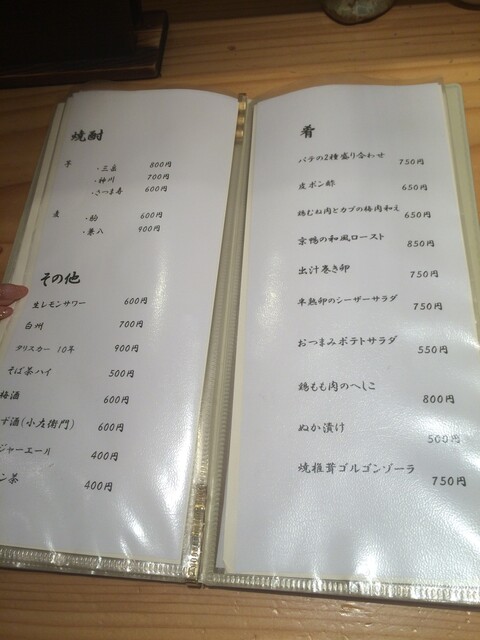 焼酎
芋 ・三岳 800円
・神川 700円
・さつま寿 600円
麦 ・駒 600円
・兼八 900円
その他
生レモンサワー 600円
白州 700円
タリスカー 10年 900円
そば茶ハイ 500円
梅酒 600円
ず酒(小左衛門) 600円
ジャーエール 400円
ン茶 400円
肴
パテの2種盛り合わせ 750円
皮ポン酢 650円
鶏むね肉とカブの梅肉和え 650円
京鴨の和風ロースト 850円
出汁巻き卵 750円
半熟卵のシーザーサラダ 750円
おつまみポテトサラダ 550円
鶏もも肉のへしこ 800円
ぬか漬け 500円
焼椎茸ゴルゴンゾーラ 750円